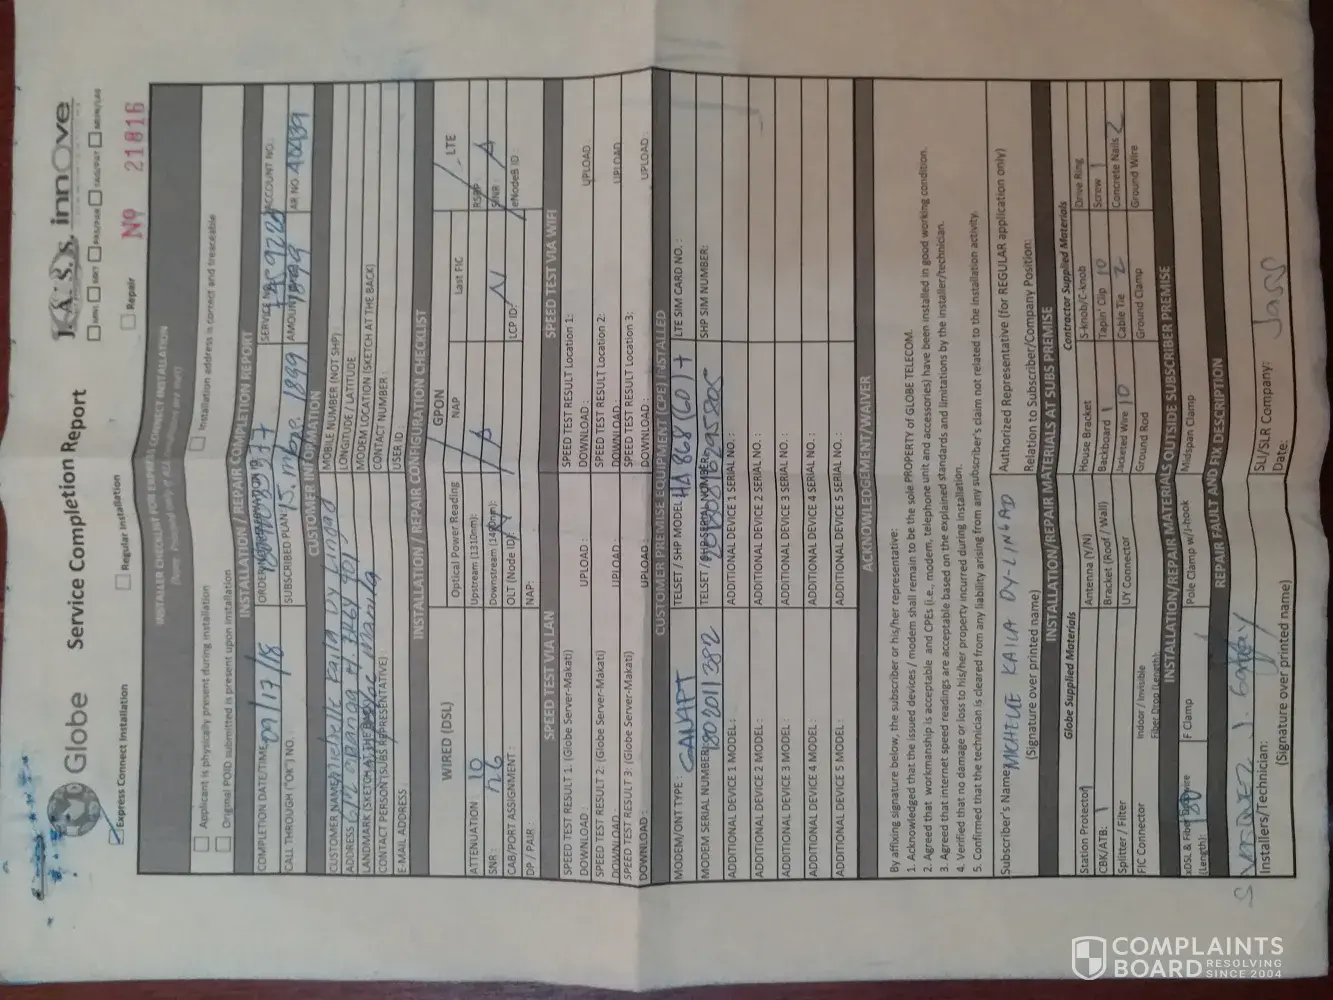 Globe Service Completion Report F.A.S.S. innOve
Express Connect Installation Regular Installation Repair Nº 21816
INSTALLER CHECKLIST FOR EXPRESS CONNECT INSTALLATION
Applicant is physically present during installation Installation address is correct and traceable
Original POID submitted is present upon installation
INSTALLATION / REPAIR COMPLETION REPORT
COMPLETION DATE/TIME: 09/17/18 ORDER SERVICE NO. ACCOUNT NO.
CALL THROUGH ("OK") NO.: SUBSCRIBED PLAN: 15 mbps 1899 AMOUNT 1899 AR NO.
CUSTOMER INFORMATION
CUSTOMER NAME: Michelle Kaila Dy Lingad MOBILE NUMBER (NOT SHP):
ADDRESS LONGITUDE / LATITUDE
LANDMARK (SKETCH AT THE BACK) MODEM LOCATION (SKETCH AT THE BACK)
CONTACT PERSON (SUBS REPRESENTATIVE): CONTACT NUMBER:
E-MAIL ADDRESS USER ID:
INSTALLATION / REPAIR CONFIGURATION CHECKLIST
WIRED (DSL) GPON LTE
Optical Power Reading NAP Last FIC
ATTENUATION 10 Upstream (1310nm): RSRP:
SNR: 26 Downstream (1490nm): SINR:
CAB/PORT ASSIGNMENT: OLT (Node ID): LCP ID: eNodeB ID:
DP / PAIR: NAP:
SPEED TEST VIA LAN SPEED TEST VIA WIFI
SPEED TEST RESULT 1: (Globe Server-Makati) SPEED TEST RESULT Location 1:
DOWNLOAD: UPLOAD: DOWNLOAD: UPLOAD:
SPEED TEST RESULT 2: (Globe Server-Makati) SPEED TEST RESULT Location 2:
DOWNLOAD: UPLOAD: DOWNLOAD: UPLOAD:
SPEED TEST RESULT 3: (Globe Server-Makati) SPEED TEST RESULT Location 3:
DOWNLOAD: UPLOAD: DOWNLOAD: UPLOAD:
CUSTOMER PREMISE EQUIPMENT (CPE) INSTALLED
MODEM/ONT TYPE: TELSET / SHP MODEL LTE SIM CARD NO.:
MODEM SERIAL NUMBER: 1802011382 TELSET / SHP SIM NUMBER:
ADDITIONAL DEVICE 1 MODEL: ADDITIONAL DEVICE 1 SERIAL NO.:
ADDITIONAL DEVICE 2 MODEL: ADDITIONAL DEVICE 2 SERIAL NO.:
ADDITIONAL DEVICE 3 MODEL: ADDITIONAL DEVICE 3 SERIAL NO.:
ADDITIONAL DEVICE 4 MODEL: ADDITIONAL DEVICE 4 SERIAL NO.:
ADDITIONAL DEVICE 5 MODEL: ADDITIONAL DEVICE 5 SERIAL NO.:
ACKNOWLEDGEMENT/WAIVER
By affixing signature below, the subscriber or his/her representative:
1. Acknowledged that the issued devices / modem shall remain to be the sole PROPERTY of GLOBE TELECOM.
2. Agreed that workmanship is acceptable and CPEs (i.e., modem, telephone unit and accessories) have been installed in good working condition.
3. Agreed that internet speed readings are acceptable based on the explained standards and limitations by the installer/technician.
4. Verified that no damage or loss to his/her property incurred during installation.
5. Confirmed that the technician is cleared from any liability arising from any subscriber's claim not related to the installation activity.
Subscriber's Name: MICHELLE KAILA DY-LINGAD Authorized Representative (for REGULAR application only)
(Signature over printed name) Relation to Subscriber/Company Position:
INSTALLATION/REPAIR MATERIALS AT SUBS PREMISE
Globe Supplied Materials Contractor Supplied Materials
Station Protector Antenna (Y/N) House Bracket S-knob/C-knob Drive Ring
CBK/ATB: 1 Bracket (Roof / Wall) Backboard 1 Tapin' Clip 10 Screw 1
Splitter / Filter UY Connector Jacketed Wire 10 Cable Tie 2 Concrete Nails 2
FIC Connector Indoor / Invisible Fiber Drop (Length): Ground Rod Ground Clamp Ground Wire
INSTALLATION/REPAIR MATERIALS OUTSIDE SUBSCRIBER PREMISE
xDSL & Fiber Dropwire (Length): F Clamp Pole Clamp w/j-hook Midspan Clamp
REPAIR FAULT AND FIX DESCRIPTION
Installers/Technician: SLI/SLR Company:
(Signature over printed name) Date:
COMPLAINTS
BOARD RESOLVING SINCE 2004